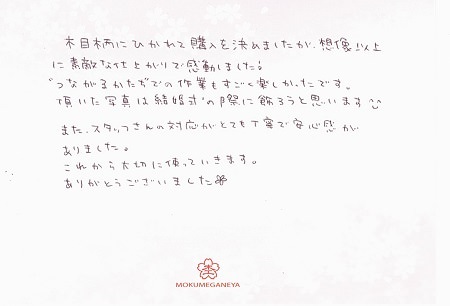 木目柄にひかれて購入を決めましたが、想像以上
に素敵な仕上がりで感動しました!
"つながるかたち"での作業もすごく楽しかったです。
頂いた写真は結婚式の際に飾ろうと思います
また、スタッフさんの対応がとても丁寧で安心感が
ありました。
これから大切に使っていきます。
ありがとうございました
MOKUMEGANEYA